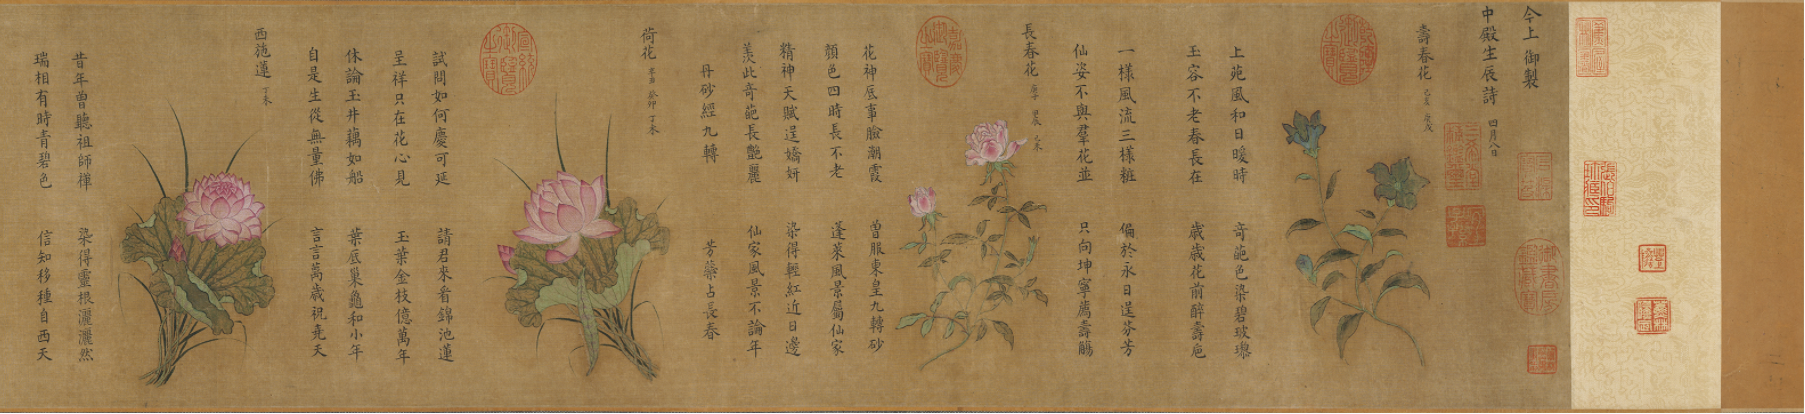 今上御製
中殿生辰詩 四月八日
壽春花 己亥 庚戌
上苑風和日暖時 奇葩色染碧玻璃
玉容不老春長在 歲歲花前醉壽巵
一樣風流三樣粧 偏於永日逞芬芳
仙姿不與群花並 只向坤寧薦壽觴
長春花 庚子 甲辰 乙未
花神底事臉潮霞 曾服東皇九轉砂
顏色四時長不老 蓬萊風景屬仙家
精神天賦逞嬌妍 染得輕紅近日邊
羨此奇葩長艷麗 仙家風景不論年
丹砂經九轉 芳蘂占長春
荷花 辛丑 癸卯 丁未
試問如何慶可延 請君來看錦池蓮
呈祥只在花心見 玉葉金枝億萬年
休論玉井藕如船 葉底巢龜和小年
自是生從無量佛 言言萬歲祝堯天
西施蓮 丁未
昔年曾聽祖師禪 染得靈根灑灑然
瑞相有時青碧色 信知移種自西天
宣統御覽之寶
嘉慶御覽之寶